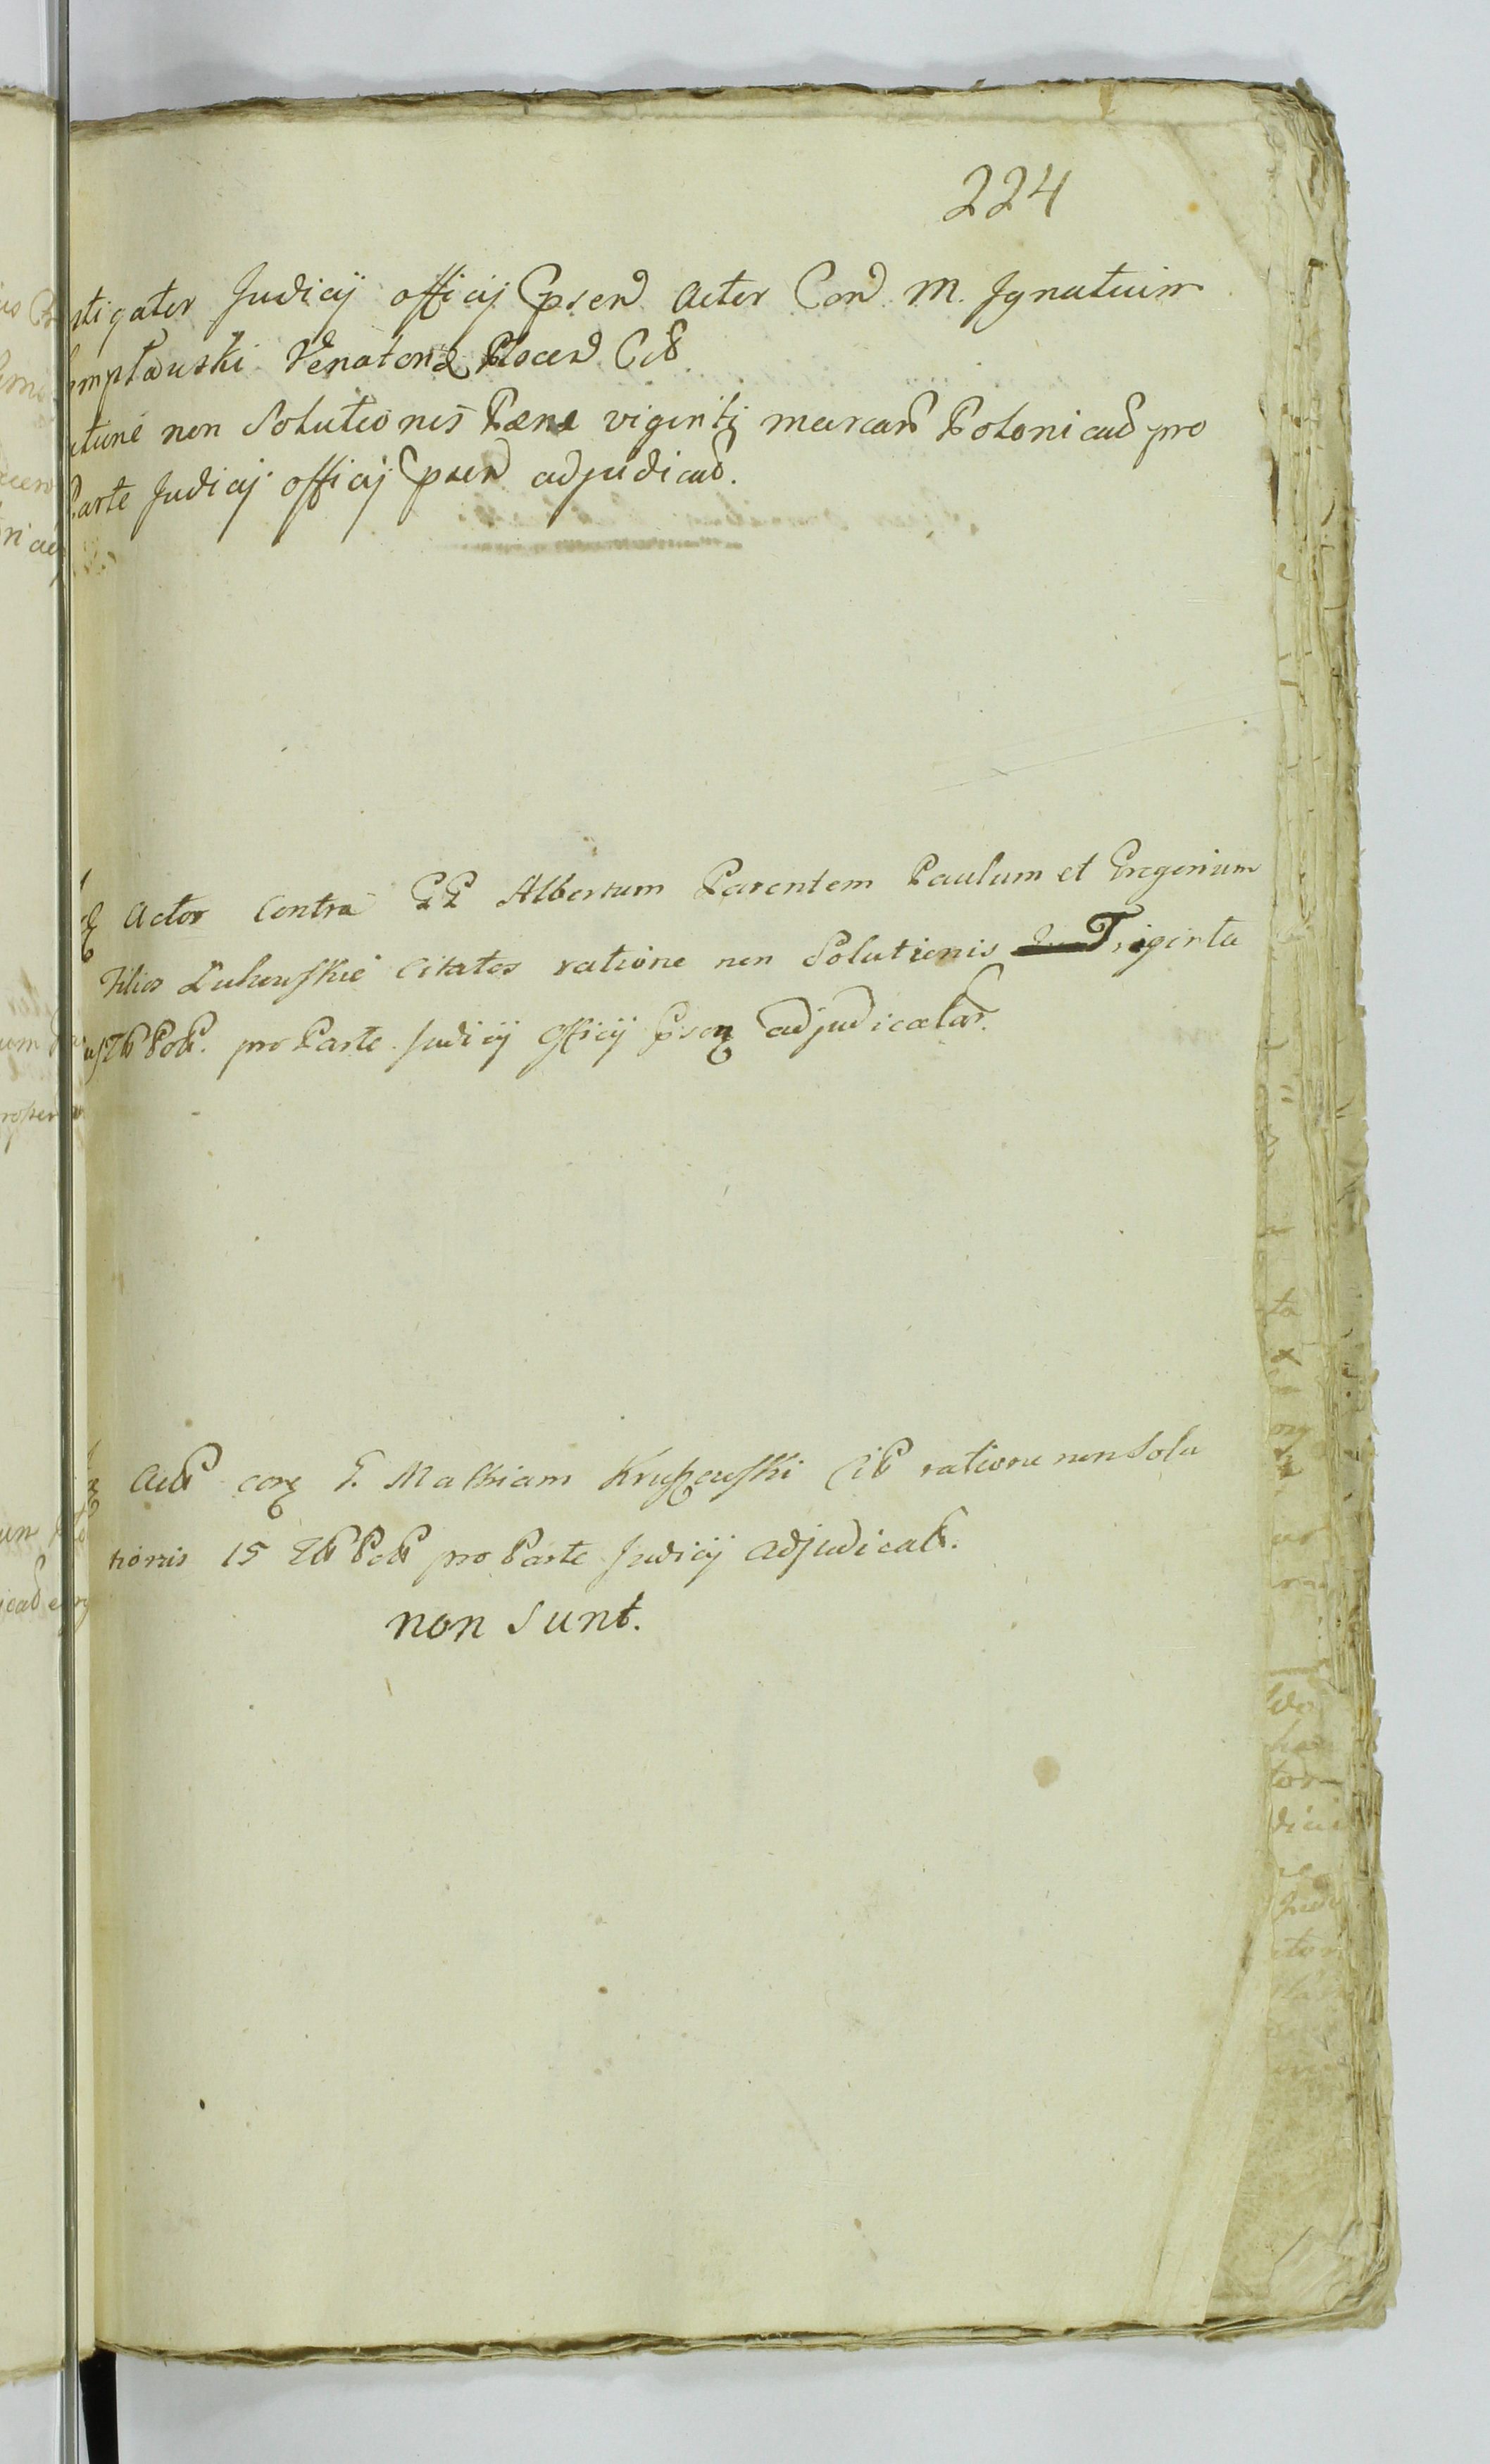 224
stigator Judicij officij Psen Actor Con M. Ignatium
mptowski Venatorē Plocen Cit
atione non Solutionis Pænæ viginti marcar Polonicar pro
Parte Judicij officij Psen adjudicar.
Actor Contra PP Albertum Parentem Paulum et Gregorium
Filios Lukowskie Citatos ratione non Solutionis Triginta
Pol. pro Parte Judicij Officij Psen adjudicatar.
Act con P. Mathiam Kruszewski Cit ratione non Solu
tionis 15 Pol pro Parte Judicij adjudicat.
non sunt.